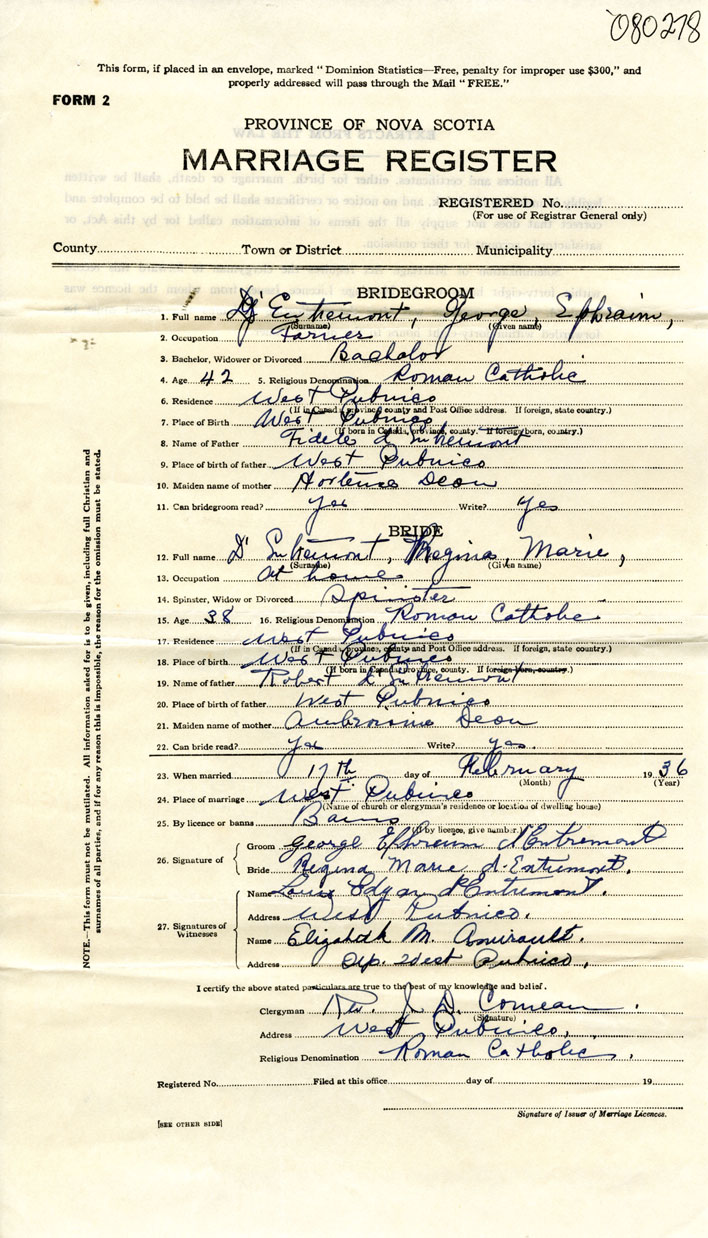 080278
This form, if placed in an envelope, marked "Dominion Statistics—Free, penalty for improper use $300," and
properly addressed will pass through the Mail "FREE."
FORM 2
PROVINCE OF NOVA SCOTIA
MARRIAGE REGISTER
REGISTERED No.
(For use of Registrar General only)
County Town or District Municipality
BRIDEGROOM
1. Full name D'Entremont, George, Ephraim,
(Surname) (Given name)
2. Occupation Farmer
3. Bachelor, Widower or Divorced Bachelor
4. Age 42 5. Religious Denomination Roman Catholic
6. Residence West Pubnico
(If in Canada, province, county and Post Office address. If foreign, state country.)
7. Place of Birth West Pubnico
(If born in Canada, province, county. If foreign born, country.)
8. Name of Father Fidele d'Entremont
9. Place of birth of father West Pubnico
10. Maiden name of mother Hortense Deon
11. Can bridegroom read? Yes Write? Yes
BRIDE
12. Full name D'Entremont, Regina, Marie,
(Surname) (Given name)
13. Occupation at home
14. Spinster, Widow or Divorced Spinster
15. Age 38 16. Religious Denomination Roman Catholic
17. Residence West Pubnico
(If in Canada, province, county and Post Office address. If foreign, state country.)
18. Place of birth West Pubnico
(If born in Canada, province, county. If foreign born, country.)
19. Name of father Robert d'Entremont
20. Place of birth of father West Pubnico
21. Maiden name of mother Ambroisine Deon
22. Can bride read? Yes Write? yes.
23. When married 17th day of February 1936
(Month) (Year)
24. Place of marriage West Pubnico
(Name of church or clergyman's residence or location of dwelling house)
25. By licence or banns Banns
(If by licence, give number.)
26. Signature of
Groom George Ephraim d'Entremont
Bride Regina Marie d'Entremont.
27. Signatures of Witnesses
Name Louis Edgar d'Entremont.
Address West Pubnico.
Name Elizabeth M. Amirault.
Address West Pubnico,
I certify the above stated particulars are true to the best of my knowledge and belief.
Clergyman Rev. J. D. Comeau.
(Signature)
Address West Pubnico,
Religious Denomination Roman Catholic.
Registered No. Filed at this office day of 19
Signature of Issuer of Marriage Licences.
[SEE OTHER SIDE]
NOTE.—This form must not be mutilated. All information asked for is to be given, including full Christian and
surnames of all parties, and if for any reason this is impossible, the reason for the omission must be stated.